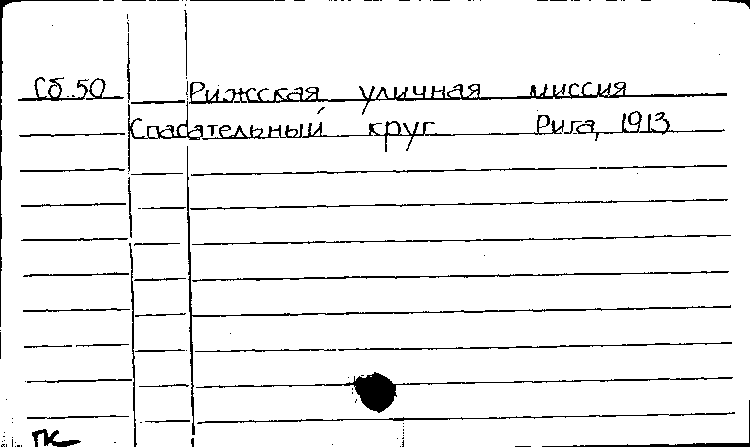 Сб.50 Рижская уличная миссия
Спасательный круг Рига, 1913
ПК